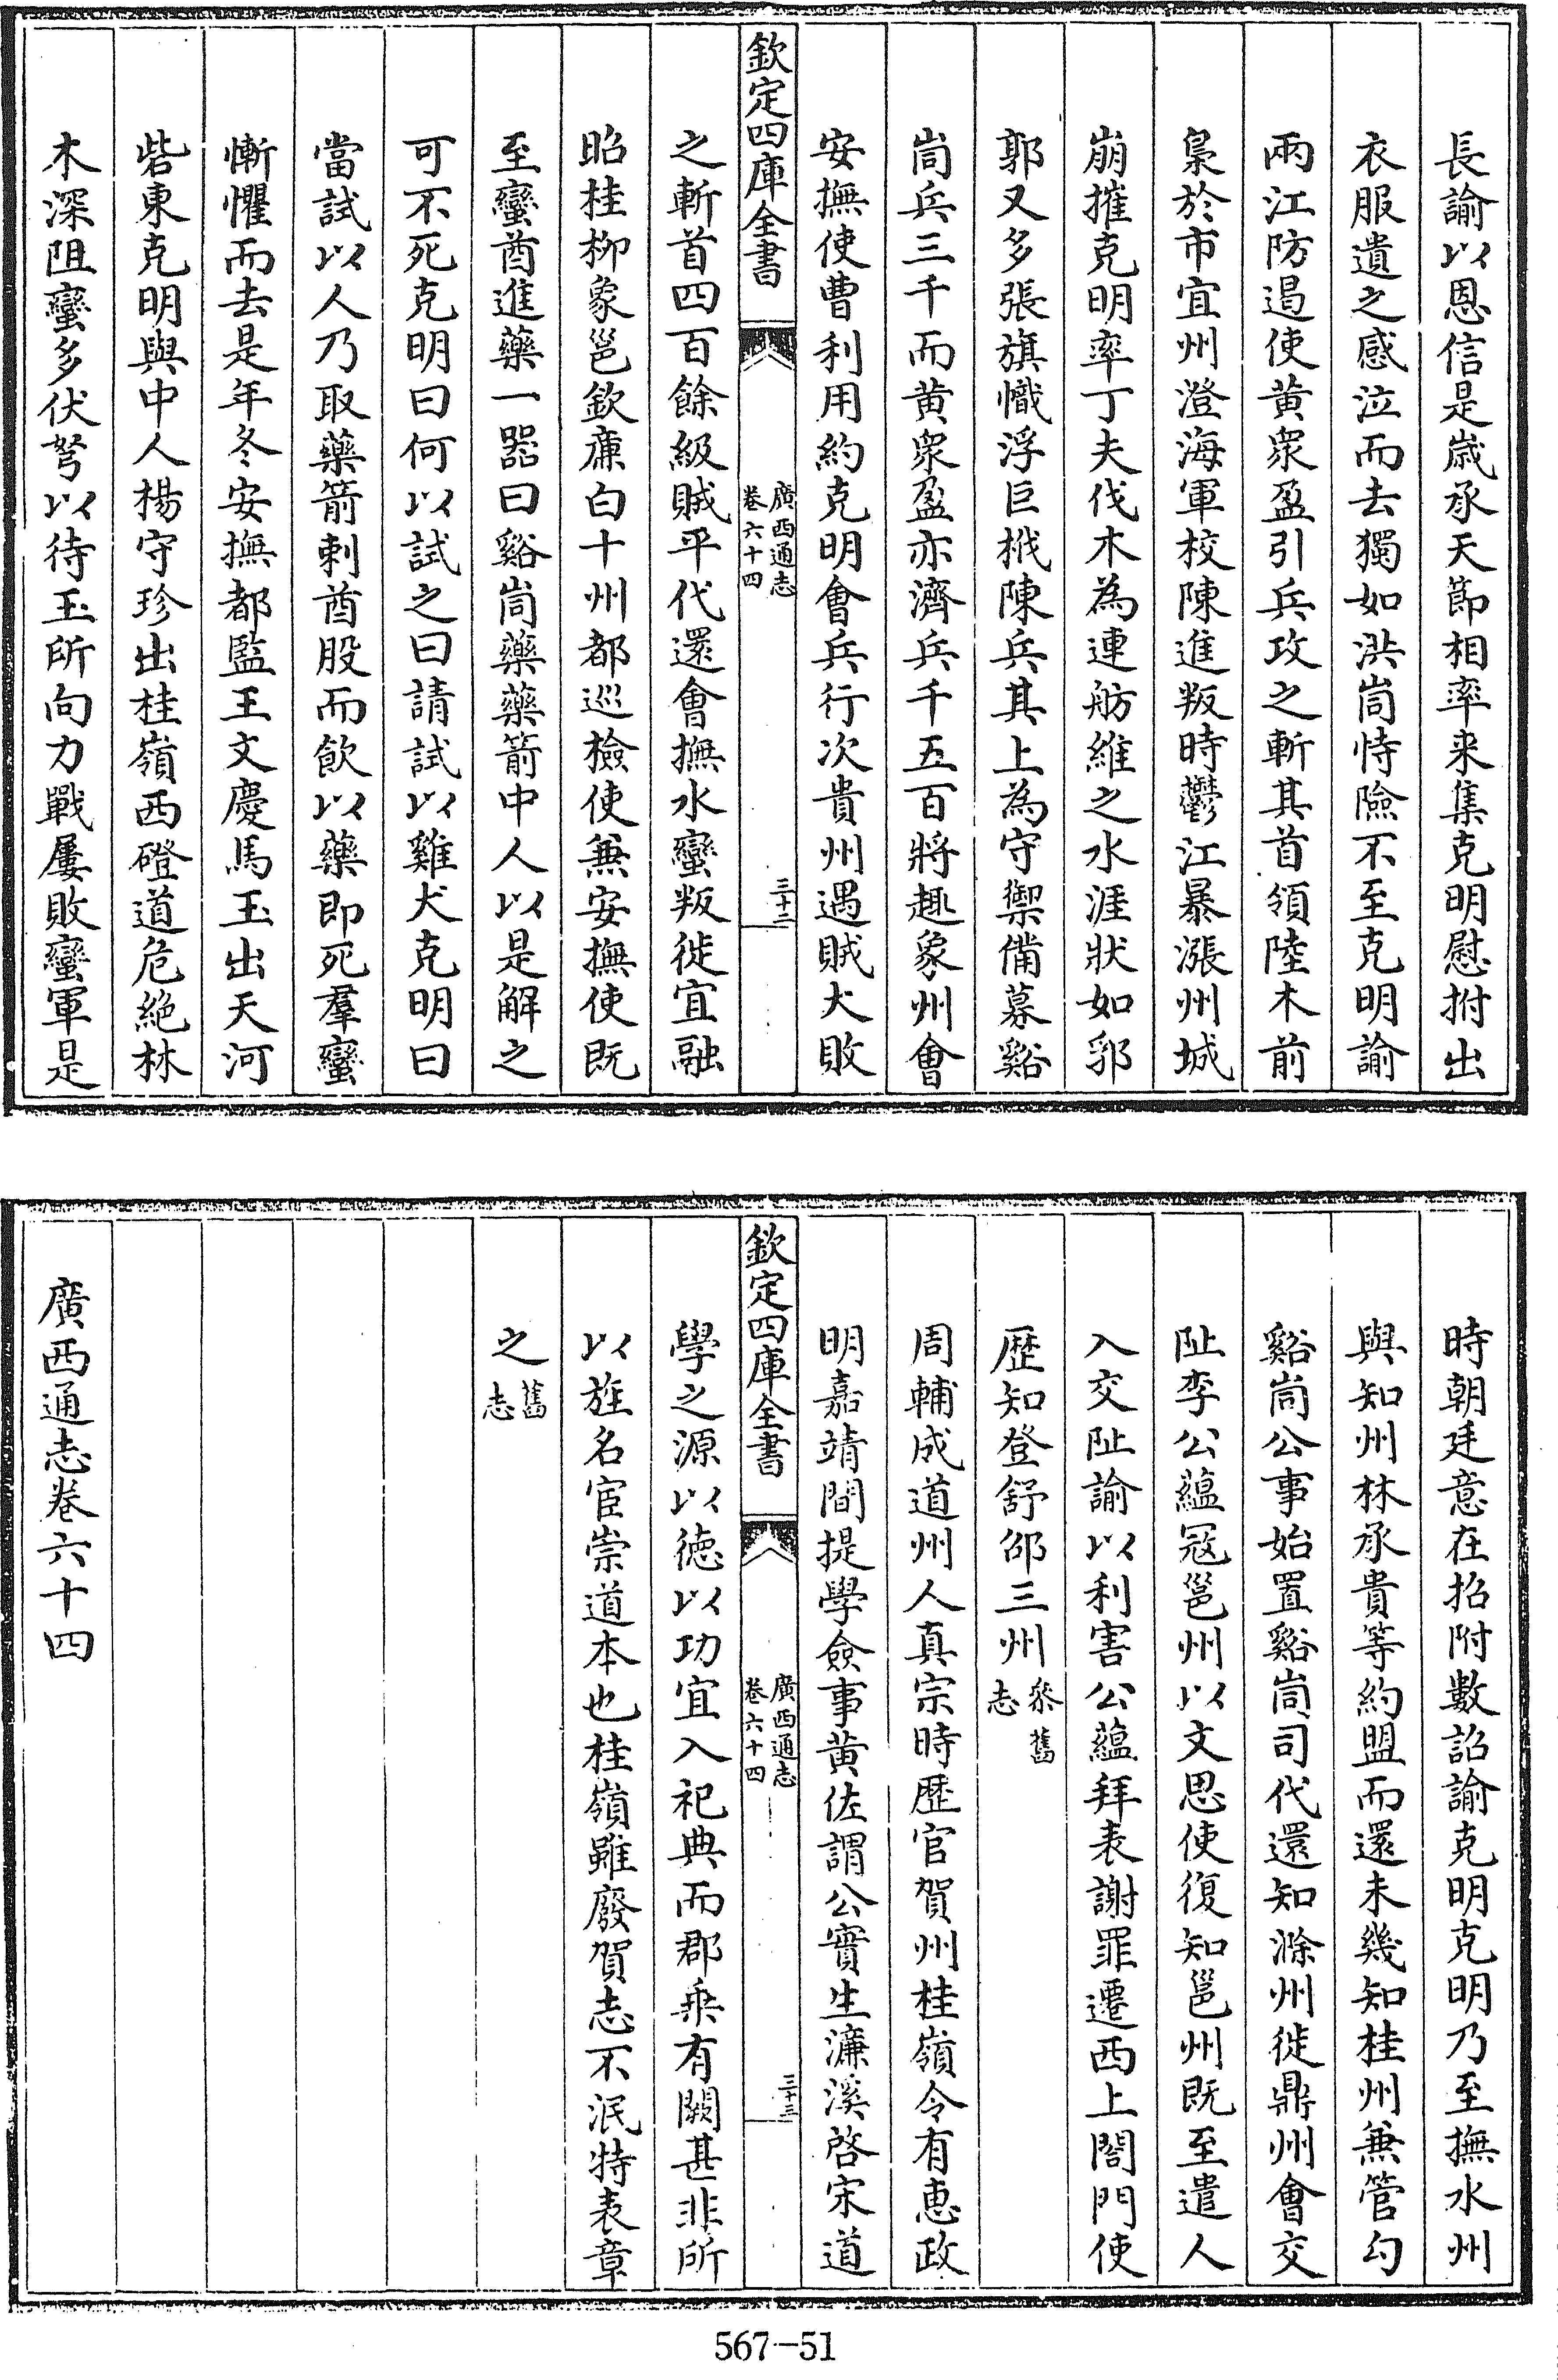 長諭以恩信是歳承天節相率来集克明慰拊出
衣服遺之感泣而去獨如洪峝恃險不至克明諭
兩江防遏使黄衆盈引兵攻之斬其首領陸木前
梟於市宜州澄海軍校陳進叛時鬱江暴漲州城
崩摧克明率丁夫伐木為連舫維之水涯狀如郛
郭又多張旗幟浮巨栰陳兵其上為守禦備募谿
峝兵三千而黄衆盈亦濟兵千五百將趣象州會
安撫使曹利用約克明會兵行次貴州遇賊大敗
欽定四庫全書
廣西通志
卷六十四
三十二
之斬首四百餘級賊平代還會撫水蠻叛徙宜融
昭桂柳象邕欽亷白十州都巡檢使兼安撫使既
至蠻酋進藥一器曰谿峝藥藥箭中人以是解之
可不死克明曰何以試之曰請試以雞犬克明曰
當試以人乃取藥箭刺酋股而飲以藥即死羣蠻
慚懼而去是年冬安撫都監王文慶馬玉出天河
砦東克明與中人楊守珍出桂嶺西磴道危絶林
木深阻蠻多伏弩以待玉所向力戰屢敗蠻軍是
時朝廷意在招附數詔諭克明克明乃至撫水州
與知州林承貴等約盟而還未幾知桂州兼管勾
谿峝公事始置谿峝司代還知滁州徙鼎州會交
阯李公蘊冦邕州以文思使復知邕州既至遣人
入交阯諭以利害公蘊拜表謝罪遷西上閤門使
歴知登舒邵三州叅舊
志
周輔成道州人真宗時歴官賀州桂嶺令有恵政
明嘉靖間提學僉事黄佐謂公實生濓溪啓宋道
欽定四庫全書
廣西通志
卷六十四
三十三
學之源以徳以功宜入祀典而郡乗有闕甚非所
以旌名宦崇道本也桂嶺雖廢賀志不泯特表章
之舊
志
廣西通志卷六十四
567-51